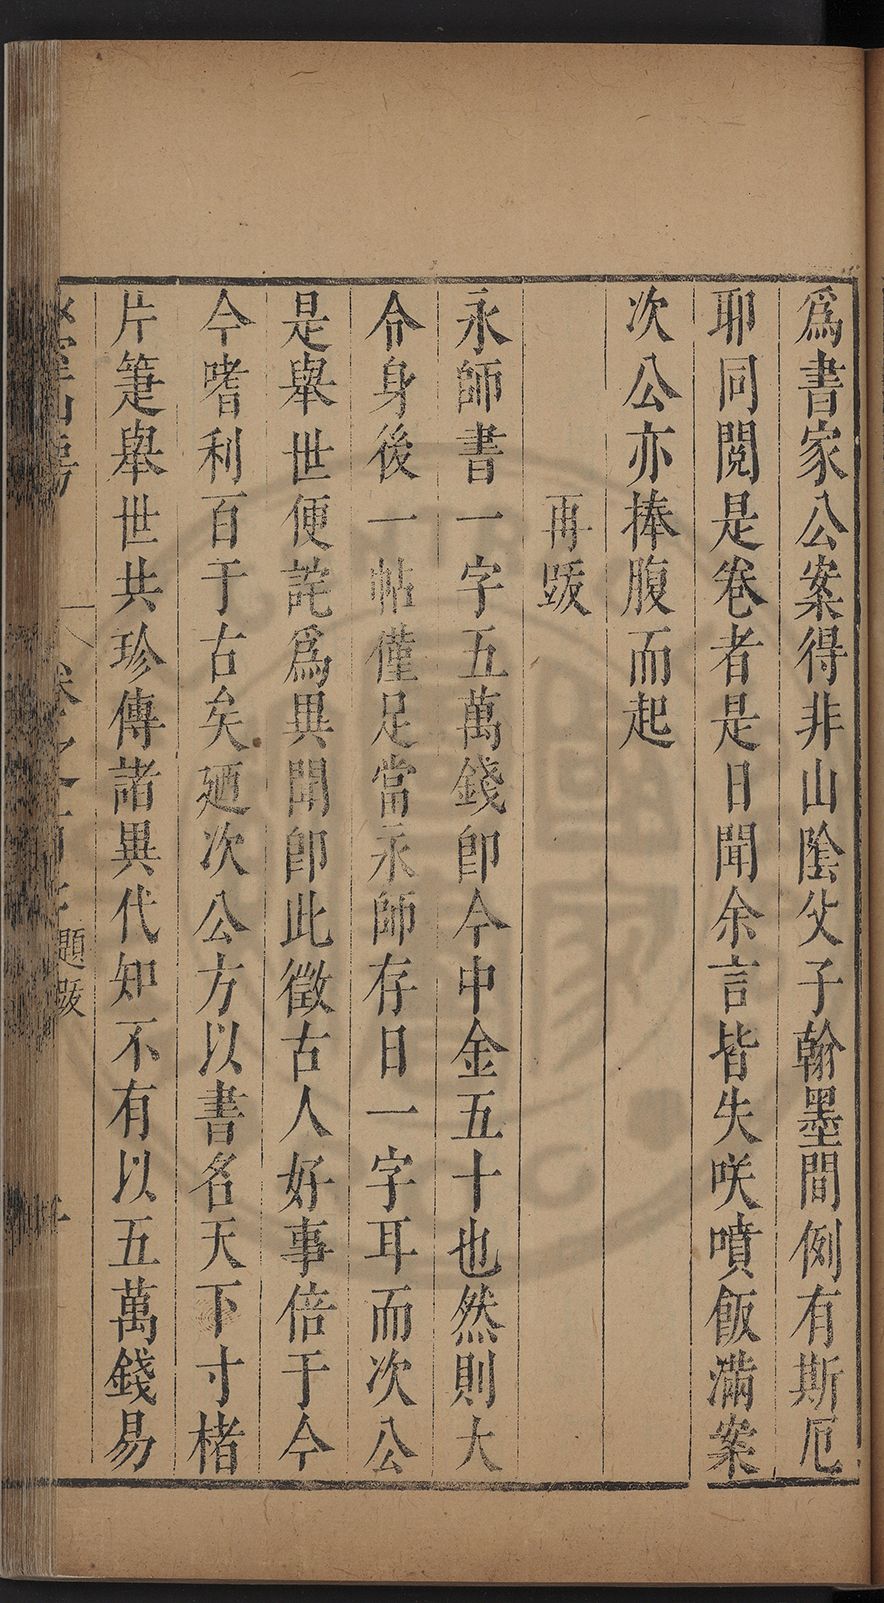 爲書家公案得非山陰父子翰墨間例有斯厄
耶同閱是卷者是日聞余言皆失咲噴飯滿案
次公亦捧腹而起
再跋
永師書一字五萬錢卽今中金五十也然則大
令身後一帖僅足當永師存日一字耳而次公
是舉世便詫爲異聞卽此徵古人好事倍于今
今嗜利百于古矣廼次公方以書名天下寸楮
片箑舉世共珍傳諸異代知不有以五萬錢易
山房 卷之 題跋